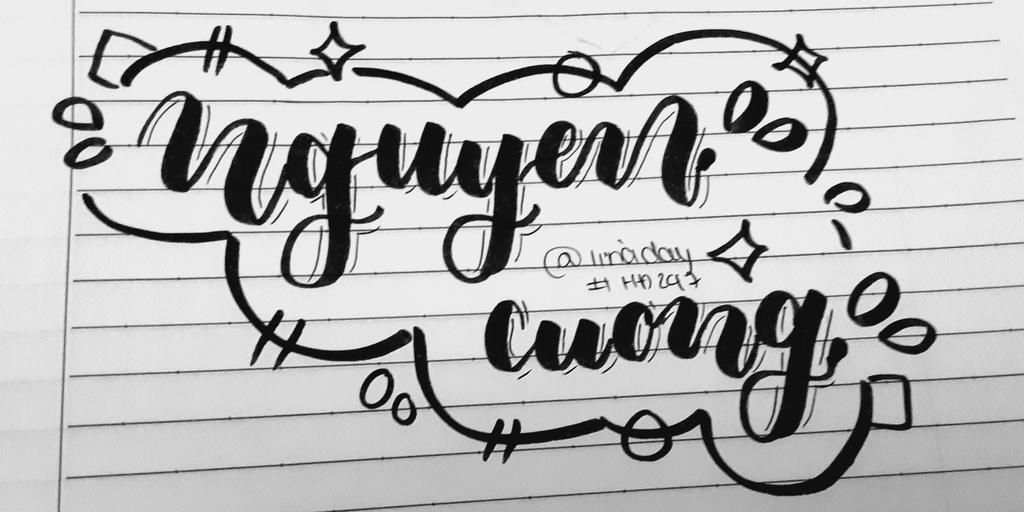 nguyen.
@linhday
#HD297
cuong.